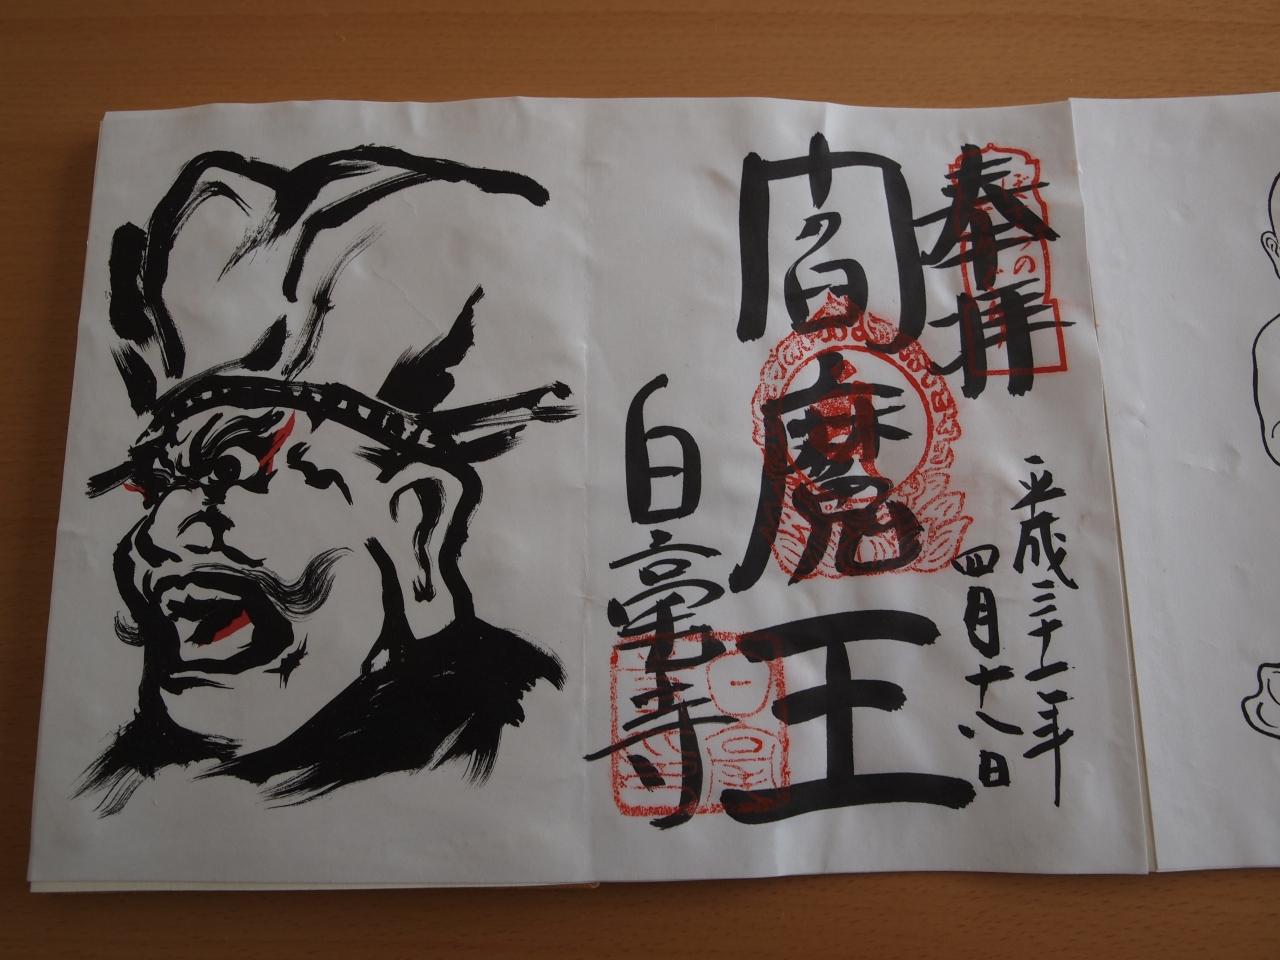 奉拝
平成三十一年
四月十八日
閻魔王
白毫寺